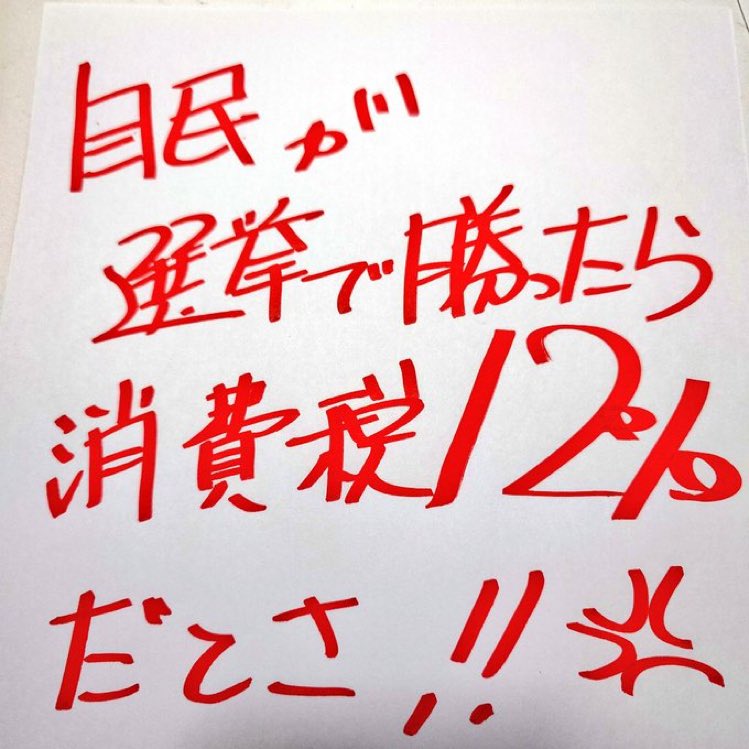 自民が
選挙で勝ったら
消費税12%
だとさ!!💢